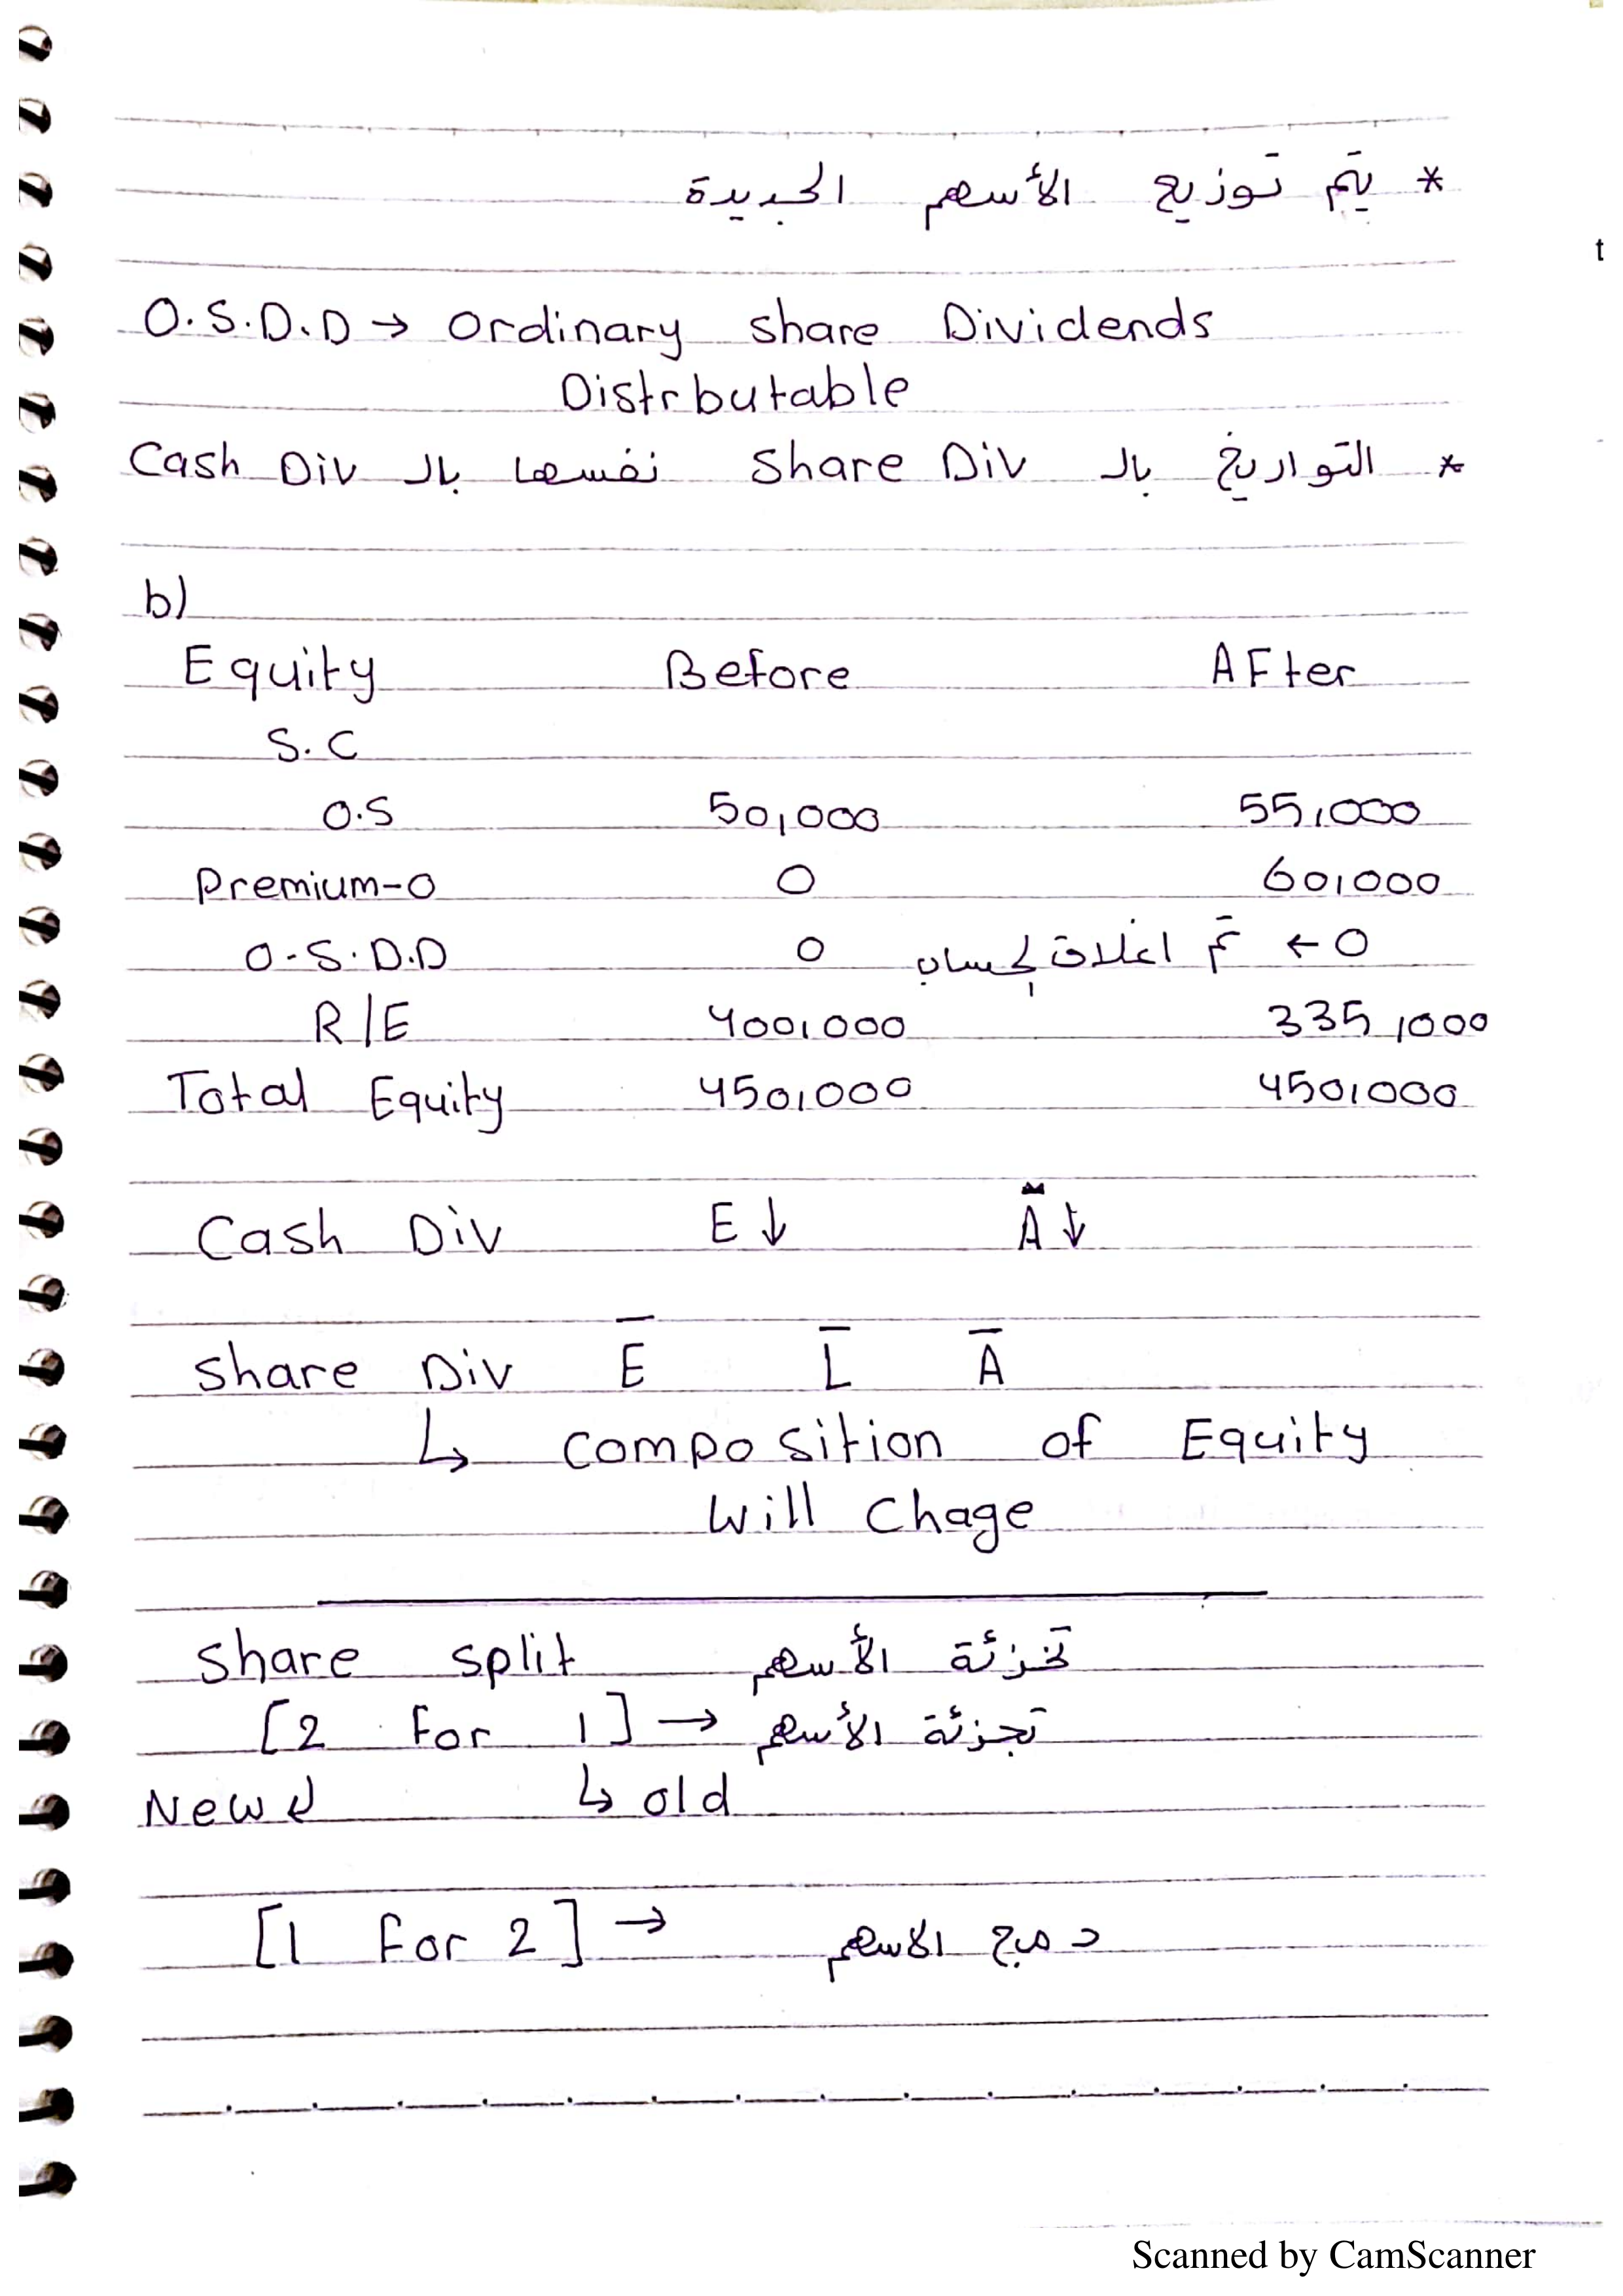 * يتم توزيع الأسهم الجديدة
t
O.S.D.D → Ordinary share Dividends
Distrbutable
* التواريخ بالـ Share Div نفسها بالـ Cash Div
b)
Equity Before AFter
S.C
O.S 50,000 55,000
Premium-O 0 60,000
O.S.D.D 0 0 ← تم اغلاق لحساب
R/E 400,000 335,000
Total Equity 450,000 450,000
Cash Div E ↓ A ↓
Share Div E̅ L̅ A̅
↳ composition of Equity
will Chage
Share split تجزئة الأسهم
[2 For 1] → تجزئة الأسهم
New ↲ ↳ old
[1 For 2] → دمج الاسهم
Scanned by CamScanner